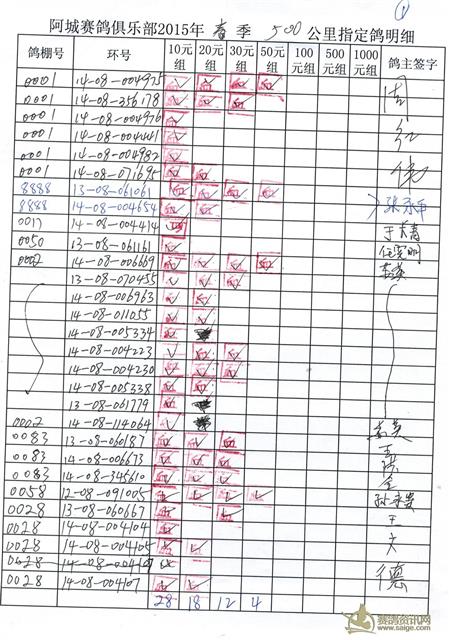 ①
阿城赛鸽俱乐部2015年 春 季 500 公里指定鸽明细
鸽棚号 环号 10元组 20元组 30元组 50元组 100元组 500元组 1000元组 鸽主签字
0001 14-08-004925
0001 14-08-356178 周
0001 14-08-004976
0001 14-08-004441
0001 14-08-004982
0001 14-08-071695 伟
8888 13-08-061061
8888 14-08-004654
0017 14-08-004414
0050 13-08-061161
0002 14-08-006669
13-08-070455
14-08-006963
14-08-011055
14-08-005334
14-08-004223
14-08-004230
14-08-005338
13-08-061779
0002 14-08-114064
0083 13-08-060187
0083 14-08-006673
0083 14-08-345610
0058 12-08-091005
0028 13-08-060667 王
0028 14-08-004104 文
0028 14-08-004105
0028 14-08-004107 德
0028 14-08-004107
28 18 12 4
赛鸽资讯网
www.saige.com